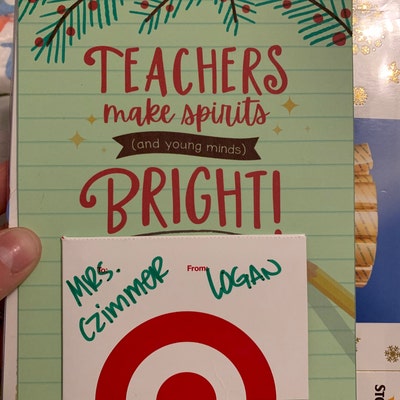 TEACHERS
make spirits
(and young minds)
BRIGHT!
To: From:
MRS. LOGAN
CZIMMER